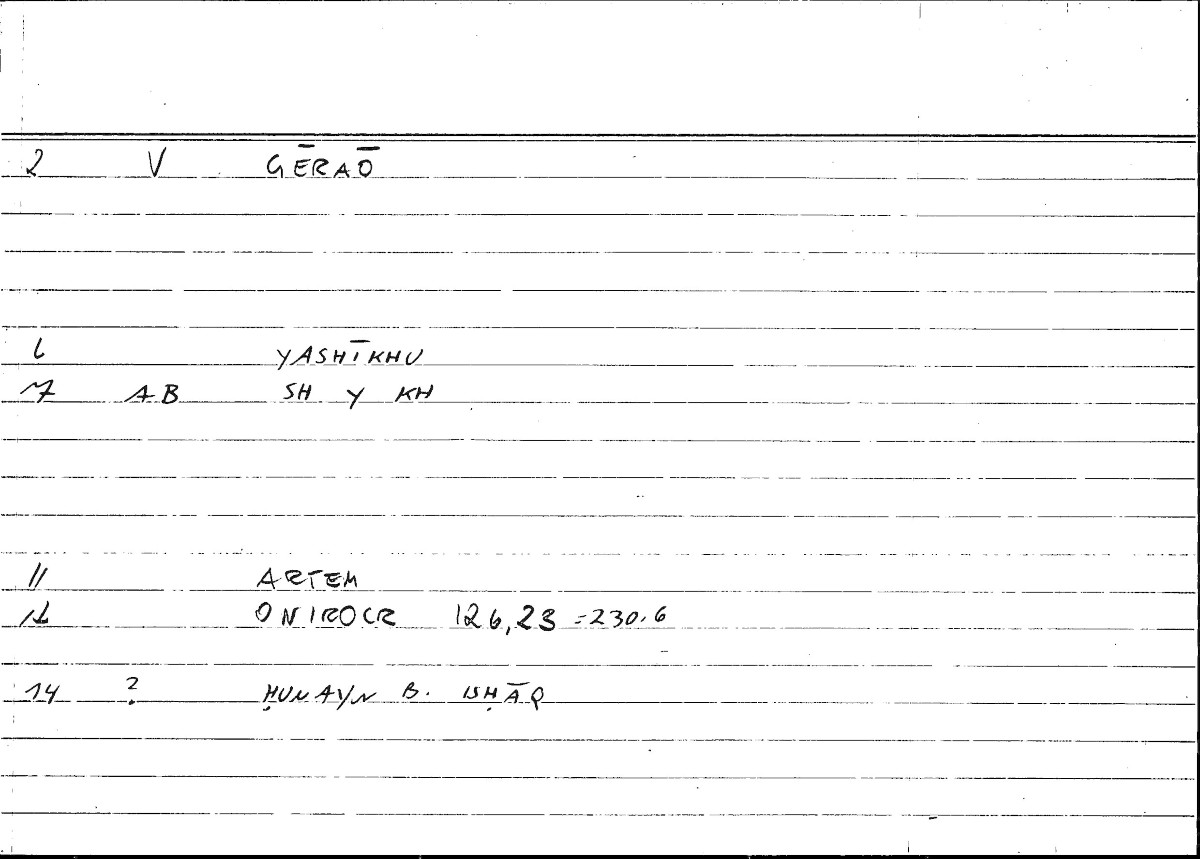 2 V GĒRAŌ
6 YASHĪKHU
7 AB SH Y KH
11 ARTEM
12 ONIROCR 126,23 = 230.6
14 ? ḤUNAYN B. ISḤĀQ